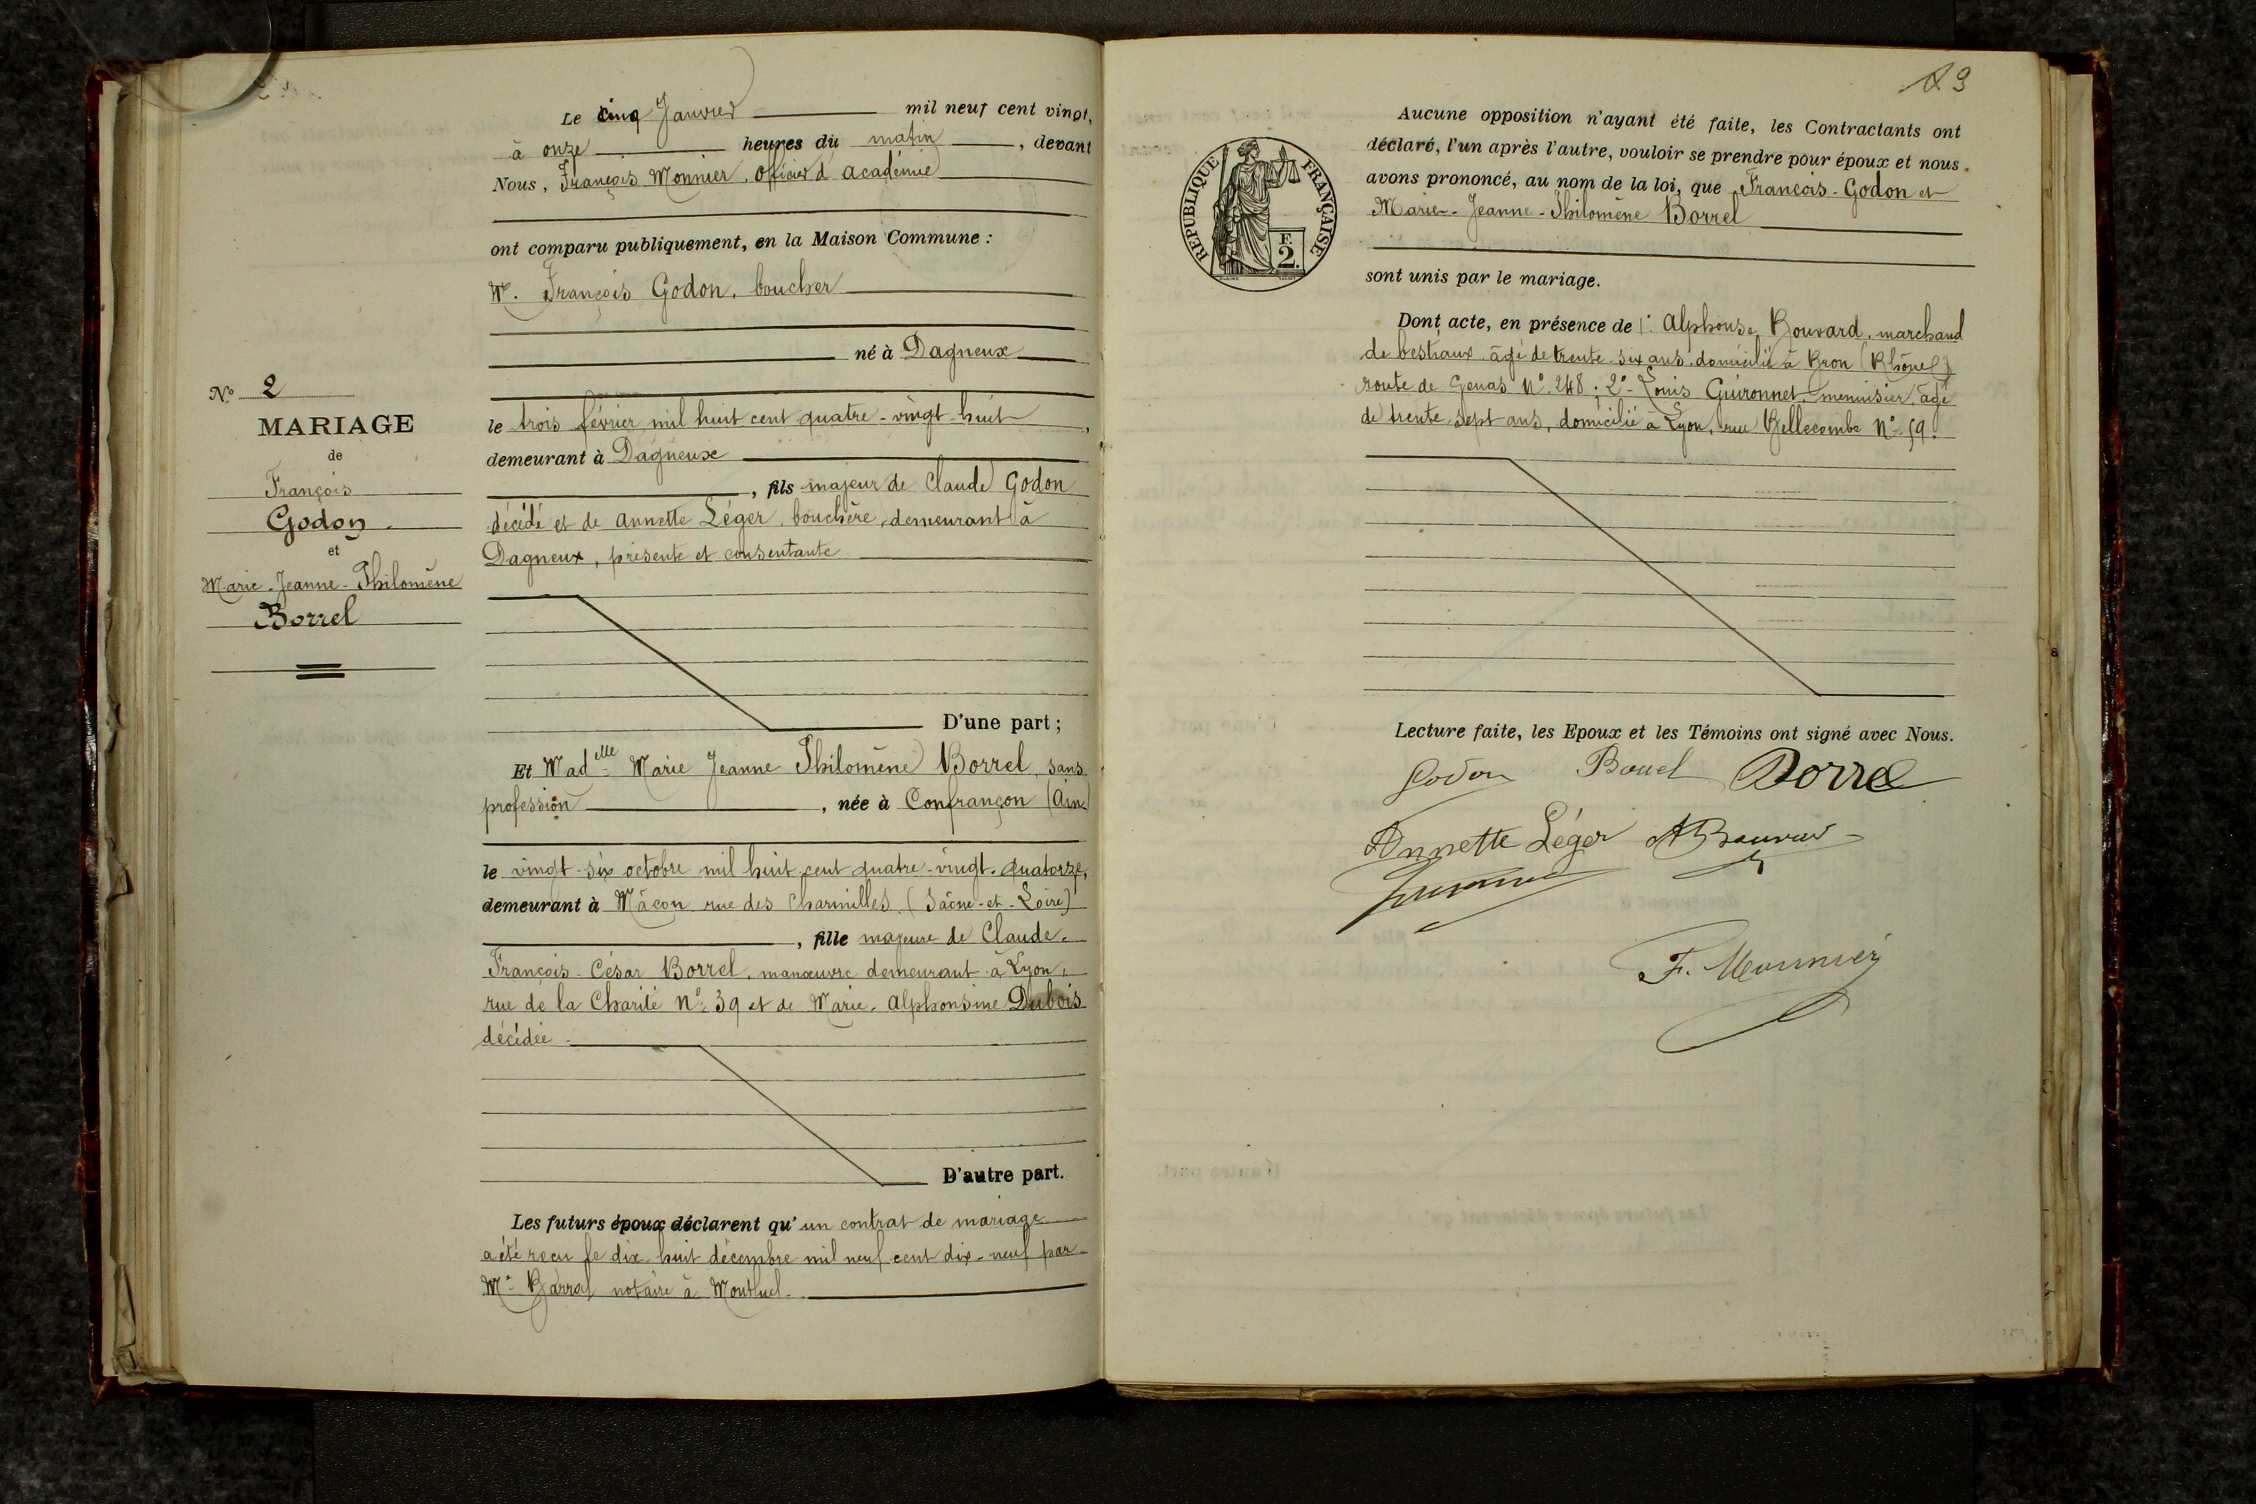 Le cinq Janvier mil neuf cent vingt,
à onze heures du matin, devant
Nous, François Monnier, officier d'académie
ont comparu publiquement, en la Maison Commune :
Mr. François Godon, boucher
né à Dagneux
le trois février mil huit cent quatre-vingt-huit,
demeurant à Dagneux
, fils majeur de Claude Godon
décédé et de Annette Léger, bouchère, demeurant à
Dagneux, présente et consentante
D'une part ;
Et Madelle Marie Jeanne Philomène Borrel, sans
profession, née à Confrançon (Ain)
le vingt-six octobre mil huit cent quatre-vingt-quatorze,
demeurant à Mâcon rue des Charmilles (Saône-et-Loire)
, fille majeure de Claude-
François-César Borrel, manœuvre demeurant à Lyon,
rue de la Charité N° 39 et de Marie-Alphonsine Dubois
décédée
D'autre part.
Les futurs époux déclarent qu'un contrat de mariage
a été reçu le dix-huit décembre mil neuf cent dix-neuf par
Me Barral notaire à Montluel.
N° 2
MARIAGE
de
François
Godon
et
Marie-Jeanne-Philomène
Borrel
3
REPUBLIQUE FRANÇAISE
F.
2.
Aucune opposition n'ayant été faite, les Contractants ont
déclaré, l'un après l'autre, vouloir se prendre pour époux et nous
avons prononcé, au nom de la loi, que François-Godon et
Marie-Jeanne-Philomène Borrel
sont unis par le mariage.
Dont acte, en présence de 1° Alphonse Bouvard, marchand
de bestiaux âgé de trente-six ans, domicilié à Bron (Rhône)
route de Genas N° 248 ; 2° Louis Guironnet menuisier âgé
de trente-sept ans, domicilié à Lyon, rue Bellecombe N° 59.
Lecture faite, les Epoux et les Témoins ont signé avec Nous.
Godon Borrel Borrel
Annette Léger A Bouvard
F. Monnier